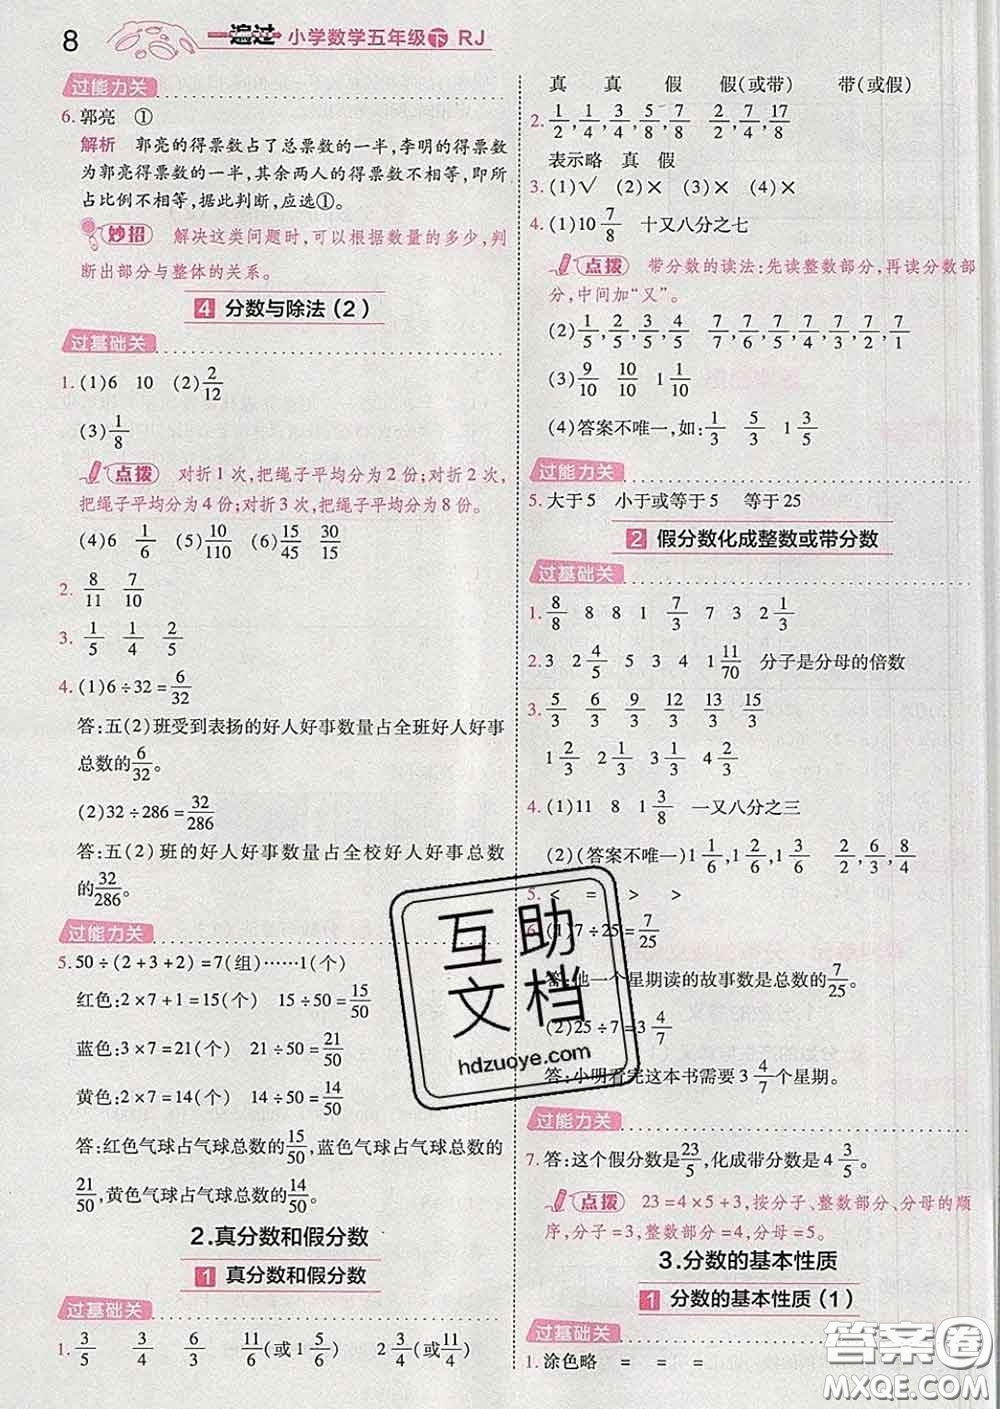 8
一遍过 小学数学五年级下 RJ
过能力关
6. 郭亮 ①
解析 郭亮的得票数占了总票数的一半,李明的得票数
为郭亮得票数的一半,其余两人的得票数不相等,即所
占比例不相等,据此判断,应选①。
妙招 解决这类问题时,可以根据数量的多少,判
断出部分与整体的关系。
4 分数与除法(2)
过基础关
1. (1)6 10 (2)2/12
(3)1/8
点拨 对折1次,把绳子平均分为2份;对折2次,
把绳子平均分为4份;对折3次,把绳子平均分为8份。
(4)6 1/6 (5)10/110 (6)15/45 15/30
2. 8/11 7/10
3. 1/5 1/4 2/5
4. (1)6÷32=6/32
答:五(2)班受到表扬的好人好事数量占全班好人好事
总数的6/32。
(2)32÷286=32/286
答:五(2)班的好人好事数量占全校好人好事总数
的32/286。
过能力关
5. 50÷(2+3+2)=7(组)……1(个)
红色:2×7+1=15(个) 15÷50=15/50
蓝色:3×7=21(个) 21÷50=21/50
黄色:2×7=14(个) 14÷50=14/50
答:红色气球占气球总数的15/50,蓝色气球占气球总数的
21/50,黄色气球占气球总数的14/50。
2.真分数和假分数
1 真分数和假分数
过基础关
1. 3/5 3/4 6/3 11/6(或1 5/6) 2 3/4(或11/4)
真 真 假 假(或带) 带(或假)
2. 1/2,1/4,3/4,5/8,7/8 2/2,7/4,17/8
表示略 真 假
3. (1)√ (2)× (3)× (4)×
4. (1)10 7/8 十又八分之七
点拨 带分数的读法:先读整数部分,再读分数部
分,中间加“又”。
(2)1/5,2/5,3/5,4/5 7/7,7/6,7/5,7/4,7/3,7/2,7/1
(3)9/10 10/10 1 1/10
(4)答案不唯一,如:1/3 5/3 1 3/5
过能力关
5. 大于5 小于或等于5 等于25
2 假分数化成整数或带分数
过基础关
1. 8/8 8 8 1 7/3 7 3 2 1/3
2. 3 2 4/5 5 1 1 11/70 分子是分母的倍数
3. 5/3 6/3 9/3 12/3 13/3 15/3
1 2/3 2 3 4 4 1/3 5
4. (1)11 8 1 3/8 一又八分之三
(2)(答案不唯一)1 1/6,1 2/6,1 3/6 4/2,6/3,8/4
5. < = > >
6. (1)7÷25=7/25
答:他一个星期读的故事数是总数的7/25。
(2)25÷7=3 4/7
答:小明看完这本书需要3 4/7个星期。
过能力关
7. 答:这个假分数是23/5,化成带分数是4 3/5。
点拨 23=4×5+3,按分子、整数部分、分母的顺
序,分子=3,整数部分=4,分母=5。
3.分数的基本性质
1 分数的基本性质(1)
过基础关
1. 涂色略 = = =
互助
文档
hdzuoye.com
答案圈
MXQE.COM